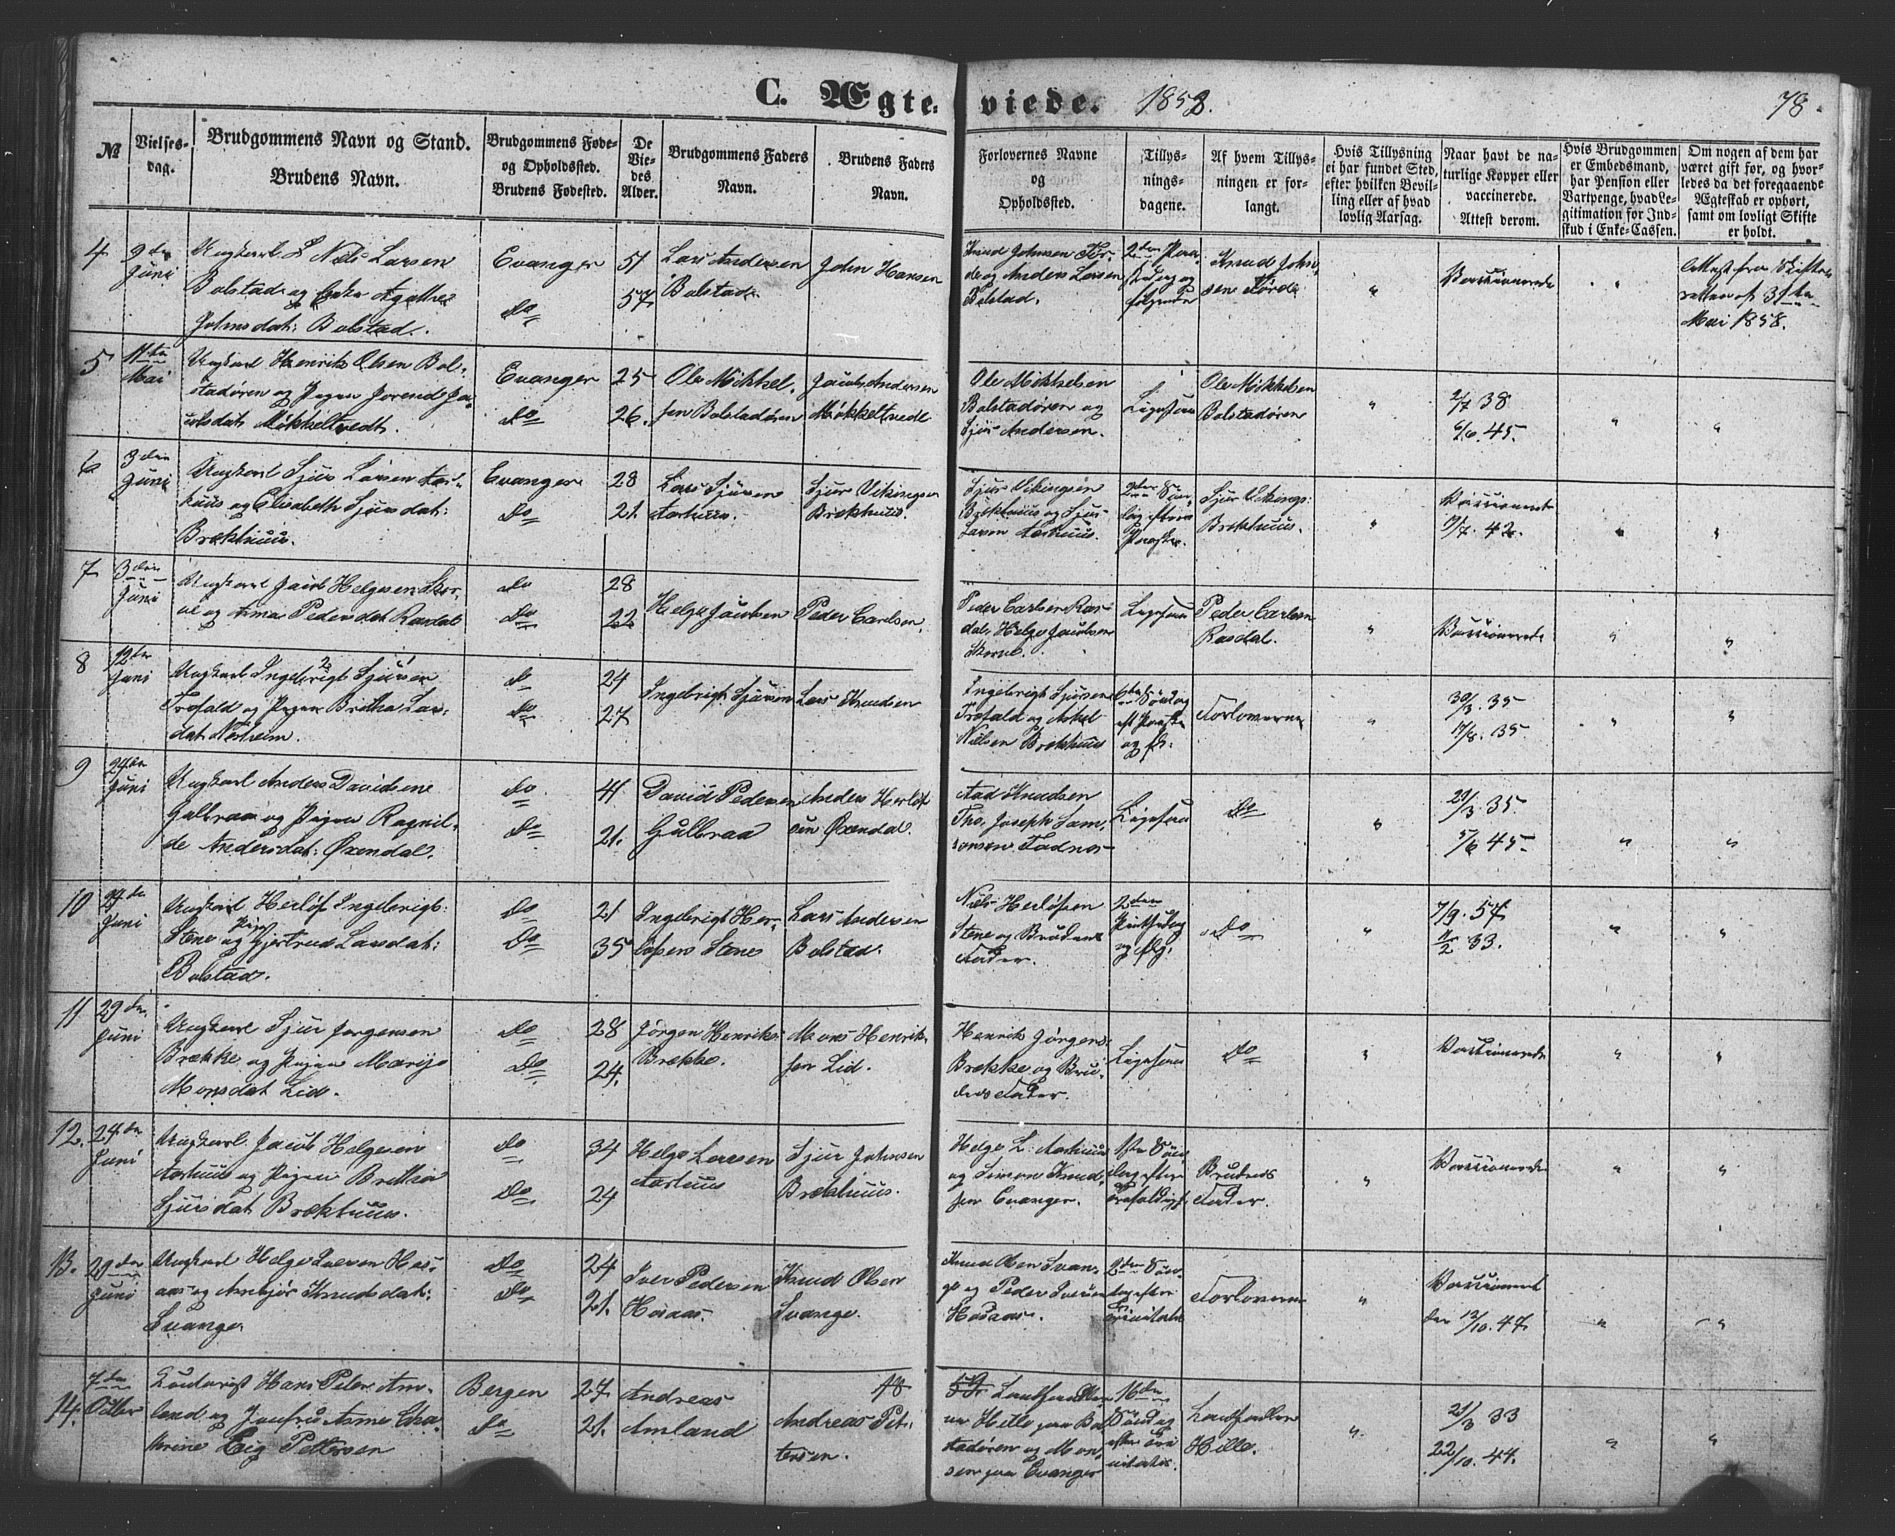 C. Ægte-viede. 1858. 78.
№
Vielses-dag.
Brudgommens Navn og Stand.
Brudens Navn.
Brudgommens Føde- og Opholdssted.
Brudens Fødested.
De Viedes Alder.
Brudgommens Faders Navn.
Brudens Faders Navn.
Forlovernes Navne og Opholdssted.
Tillysningsdagene.
Af hvem Tillysningen er forlangt.
Hvis Tillysning ei har fundet Sted, efter hvilken Bevilling eller af hvad lovlig Aarsag.
Naar havt de naturlige Kopper eller vaccinerede. Attest derom.
Hvis Brudgommen er Embedsmand, har Pension eller Vartpenge, hvad Legitimation for Indskud i Enke-Cassen.
Om nogen af dem har været gift før, og hvorledes da det foregaaende Ægteskab er ophørt, samt om lovligt Skifte er holdt.
4
9den Juni
Ungkarl Nils Larsen
Bolstad og Enke Agathe
Johnsdat: Bolstad.
Evanger
do
51
57
Lars Andersen
Bolstad
John Hansen
Knud Johnsen Før-
de og Anders Larsen
Bolstad.
Knud John-
sen Førde
"
Vaccinerede
"
Attest fra Skifte-
retten af 31te
Mai 1858.
5
11te Mai
Ungkarl Henrik Olsen Bol-
stadøren og Pigen Jorend Ja-
cobsdat: Mikkeltvedt.
Evanger
do
25
26.
Ole Mikkel-
sen Bolstadøren
Jacob Andersen
Mikkeltvedt
Ole Mikkelsen
Bolstadøren og
Sjur Andersen.
Ligesaa
Ole Mikkelsen
Bolstadøren
"
2/7 38
6/6. 45.
"
"
6
3den Juni
Ungkarl Sjur Larsen Aar-
huus og Elisabeth Sjursdat:
Brækhuus.
Evanger
Do
28
21.
Lars Sjursen
Aarhuus.
Sjur Vikingsen
Brækhuus.
Sjur Vikingsen
Brækhuus og Sjur
Larsen Aarhuus.
Sjur Vikings:
Brækhuus.
"
Vaccineret
7/7. 42.
"
"
7
3den Juni
Ungkarl Jacob Helgesen Skor-
ve og Anna Pedersdat Rasdal
do
Do
28
22
Helge Jacobsen
Peder Carlsen.
Peder Carlsen Ras-
dal, Helge Jacobsen
Skorve.
Ligesaa
Peder Carlsen
Rasdal.
"
Vaccinerede
"
"
8
12te Juni
Ungkarl Ingebrigt Sjursen
Fosfald og Pigen Britha Lars-
dat Nesheim.
do
do
24
27
Ingebrigt Sjursen
Lars Knudsen
Ingebrigt Sjursen
Nielsen Brækhuus
Forloverne
"
30/3. 35
17/8. 35
"
"
9
24de Juni
Ungkarl Anders Davidsen
Gulbraa og Pigen Ragnil-
de Andersdat: Øxendal.
Do
Do
41
21.
David Pedersen
Gulbraa
Anders Herlof-
sen Øxendal.
Aad Knudsen
Joseph Sam-
sonsen Fadnes
Ligesaa
Do
"
29/3. 35.
5/6 45
"
"
10
24de Juni
Ungkarl Herlof Ingebrigt:
Stene og Pigen Gjertrud Larsdat:
Bolstad.
Do
Do
21
35
Ingebrigt Her-
lofsen Stene
Lars Andersen
Bolstad.
Niels Herlofsen
Stene og Brudens
Fader.
2den
Pintsedag
og flg.
Do
"
7/9. 57
33.
"
"
11
29de Juni
Ungkarl Sjur Jørgensen
Brække og Pigen Marijo
Monsdat Lid.
Do
Do
28
24.
Jørgen Henriks:
Brekke.
Mons Henrik-
sen Lid.
Henrik Jørgens:
Brække og Bru-
dens Fader.
Ligesaa
Do
"
Vaccinerede
"
"
12.
24de Juni
Ungkarl Jacob Helgesen
Aarhuus og Pigen Britha
Sjursdat Brækhuus.
do
Do
34
24
Helge Larsen
Aarhuus
Sjur Johnsen
Brækhuus.
Helge L: Aarhuus
og Simon Knud-
sen Evanger.
Brudens
Fader.
"
Vaccinerede
"
"
13.
29de Juni
Ungkarl Helge Iversen Hos-
aas og Anbjør Knudsdat:
Evanger
Do
Do
24
21.
Iver Pedersen
Hosaas.
Knud Olsen
Evange.
Knud Olsen Evan-
ge og Peder Iversen
Hosaas.
Forloverne
"
Vaccineret
den 12/10. 47
"
"
14.
7de Octbr
Hans Peter Am-
land og Jomfru Anna Cha-
thrine Lig Pettersen
Bergen
Do
27
21.
Andreas
Amland
48
Andreas Pet-
tersen.
Landhandler
Hille paa Bol-
stadøren og Mon-
sen paa Evanger
16de
Søndag
efter Tri-
nitatis.
Landhandler
Hille.
"
21/3 33
22/10. 44.
"
"